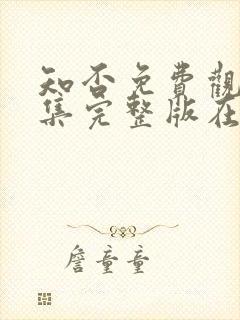 知否免費觀
集完整版在
詹童童